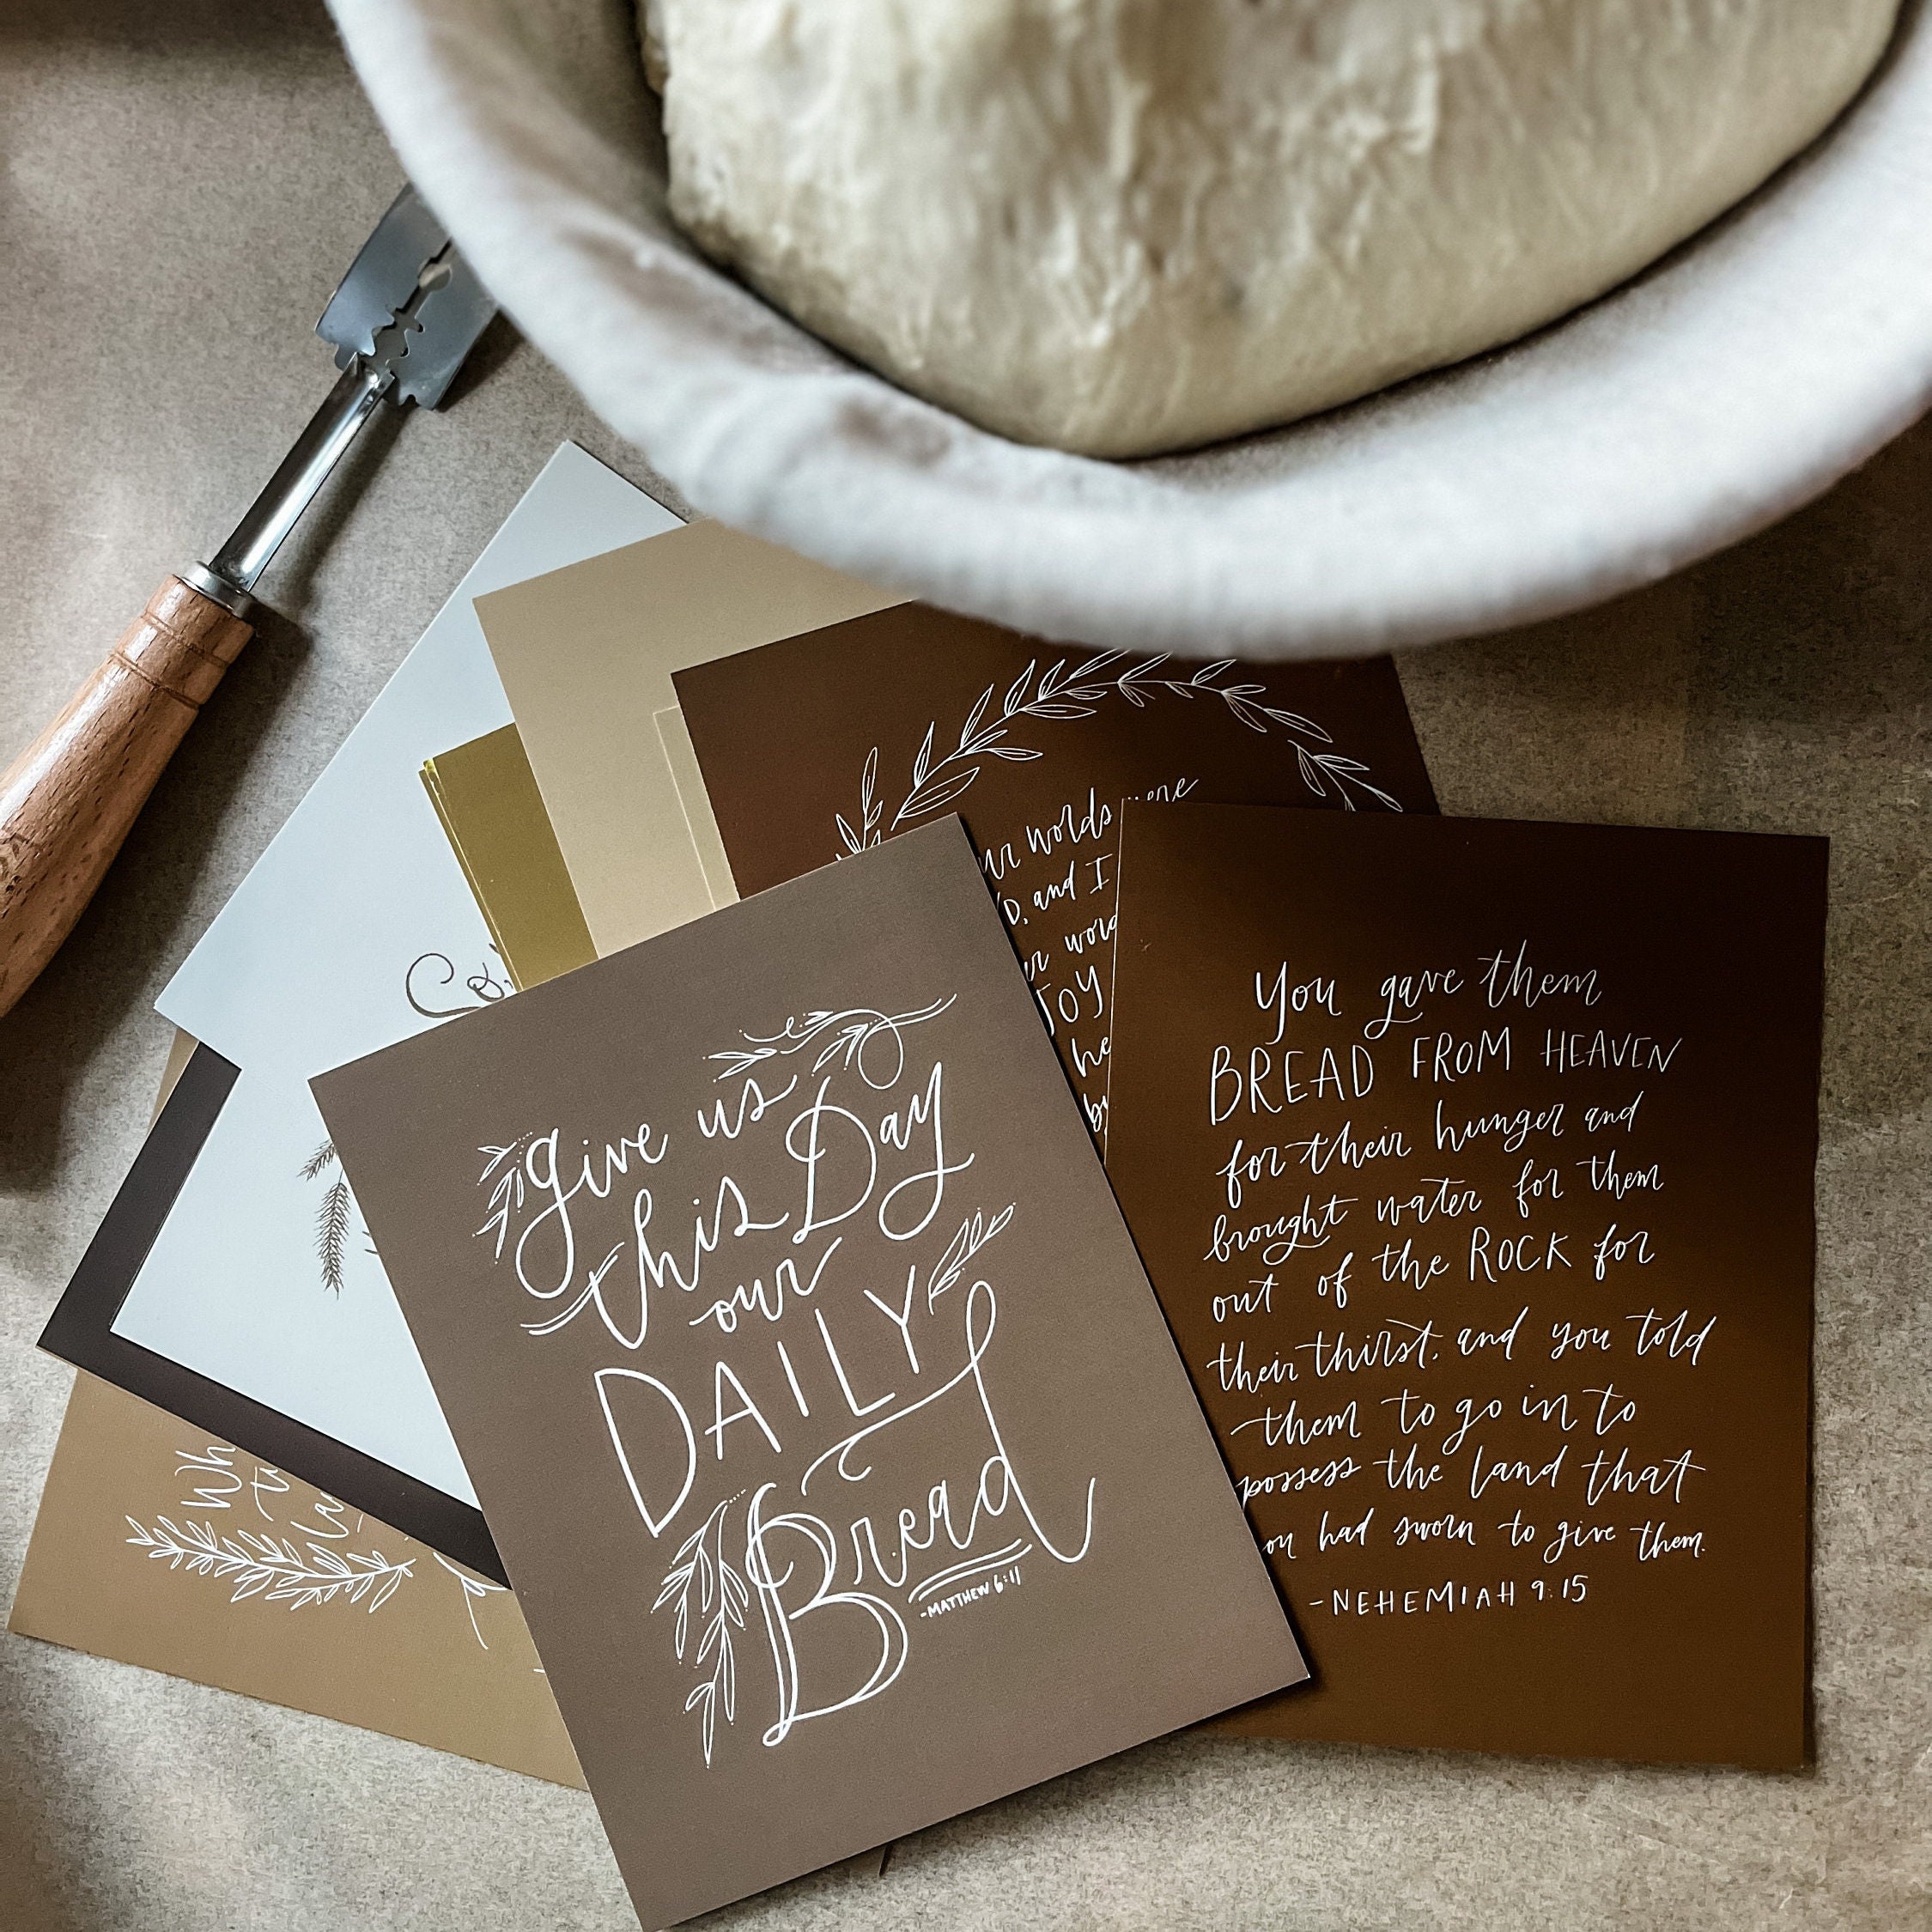 give us
this Day
our
DAILY
Bread
-MATTHEW 6:11
You gave them
BREAD FROM HEAVEN
for their hunger and
brought water for them
out of the ROCK for
their thirst, and you told
them to go in to
possess the land that
had sworn to give them.
-NEHEMIAH 9:15
words were
and I
JOY